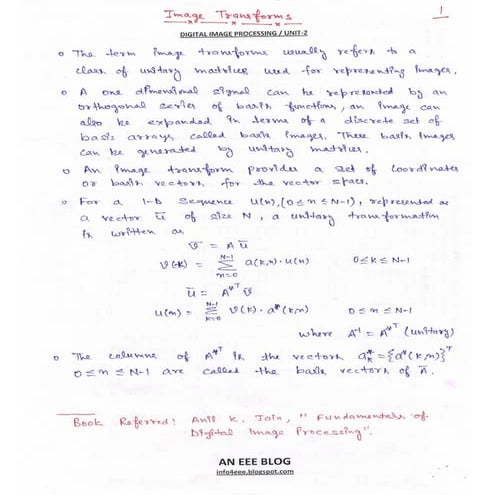 Image Transforms
1
DIGITAL IMAGE PROCESSING / UNIT-2
o The term image transforms usually refers to a
class of unitary matrices used for representing images.
o A one dimensional signal can be represented by an
orthogonal series of basis functions, an image can
also be expanded in terms of a discrete set of
basis arrays called basis images. These basis images
can be generated by unitary matrices.
o An image transform provides a set of coordinates
or basis vectors for the vector space.
o For a 1-D sequence U(n), (0≤n≤N-1), represented as
a vector ū of size N, a unitary transformation
is written as
v̄ = A ū
v(k) = Σ_{n=0}^{N-1} a(k,n)·u(n) 0≤k≤N-1
ū = A*ᵀ v̄
u(n) = Σ_{k=0}^{N-1} v(k)·a*(k,n) 0≤n≤N-1
where A⁻¹ = A*ᵀ (unitary)
o The columns of A*ᵀ is the vectors a*_k = {a*(k,n)}ᵀ
0≤n≤N-1 are called the basis vectors of Ā.
Book Referred: Anil K. Jain, "Fundamentals of
Digital Image Processing".
AN EEE BLOG
info4eee.blogspot.com